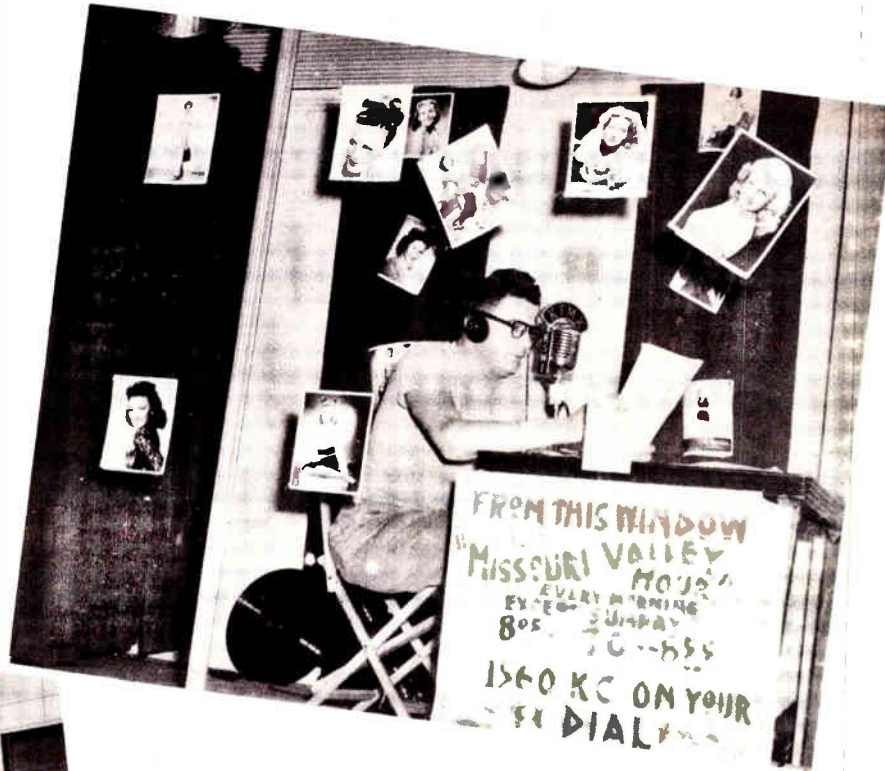 FROM THIS WINDOW
"MISSOURI VALLEY
HOUR"
EVERY MORNING
EXCEPT SUNDAY
805 TO 855
1560 KC ON YOUR
DIAL